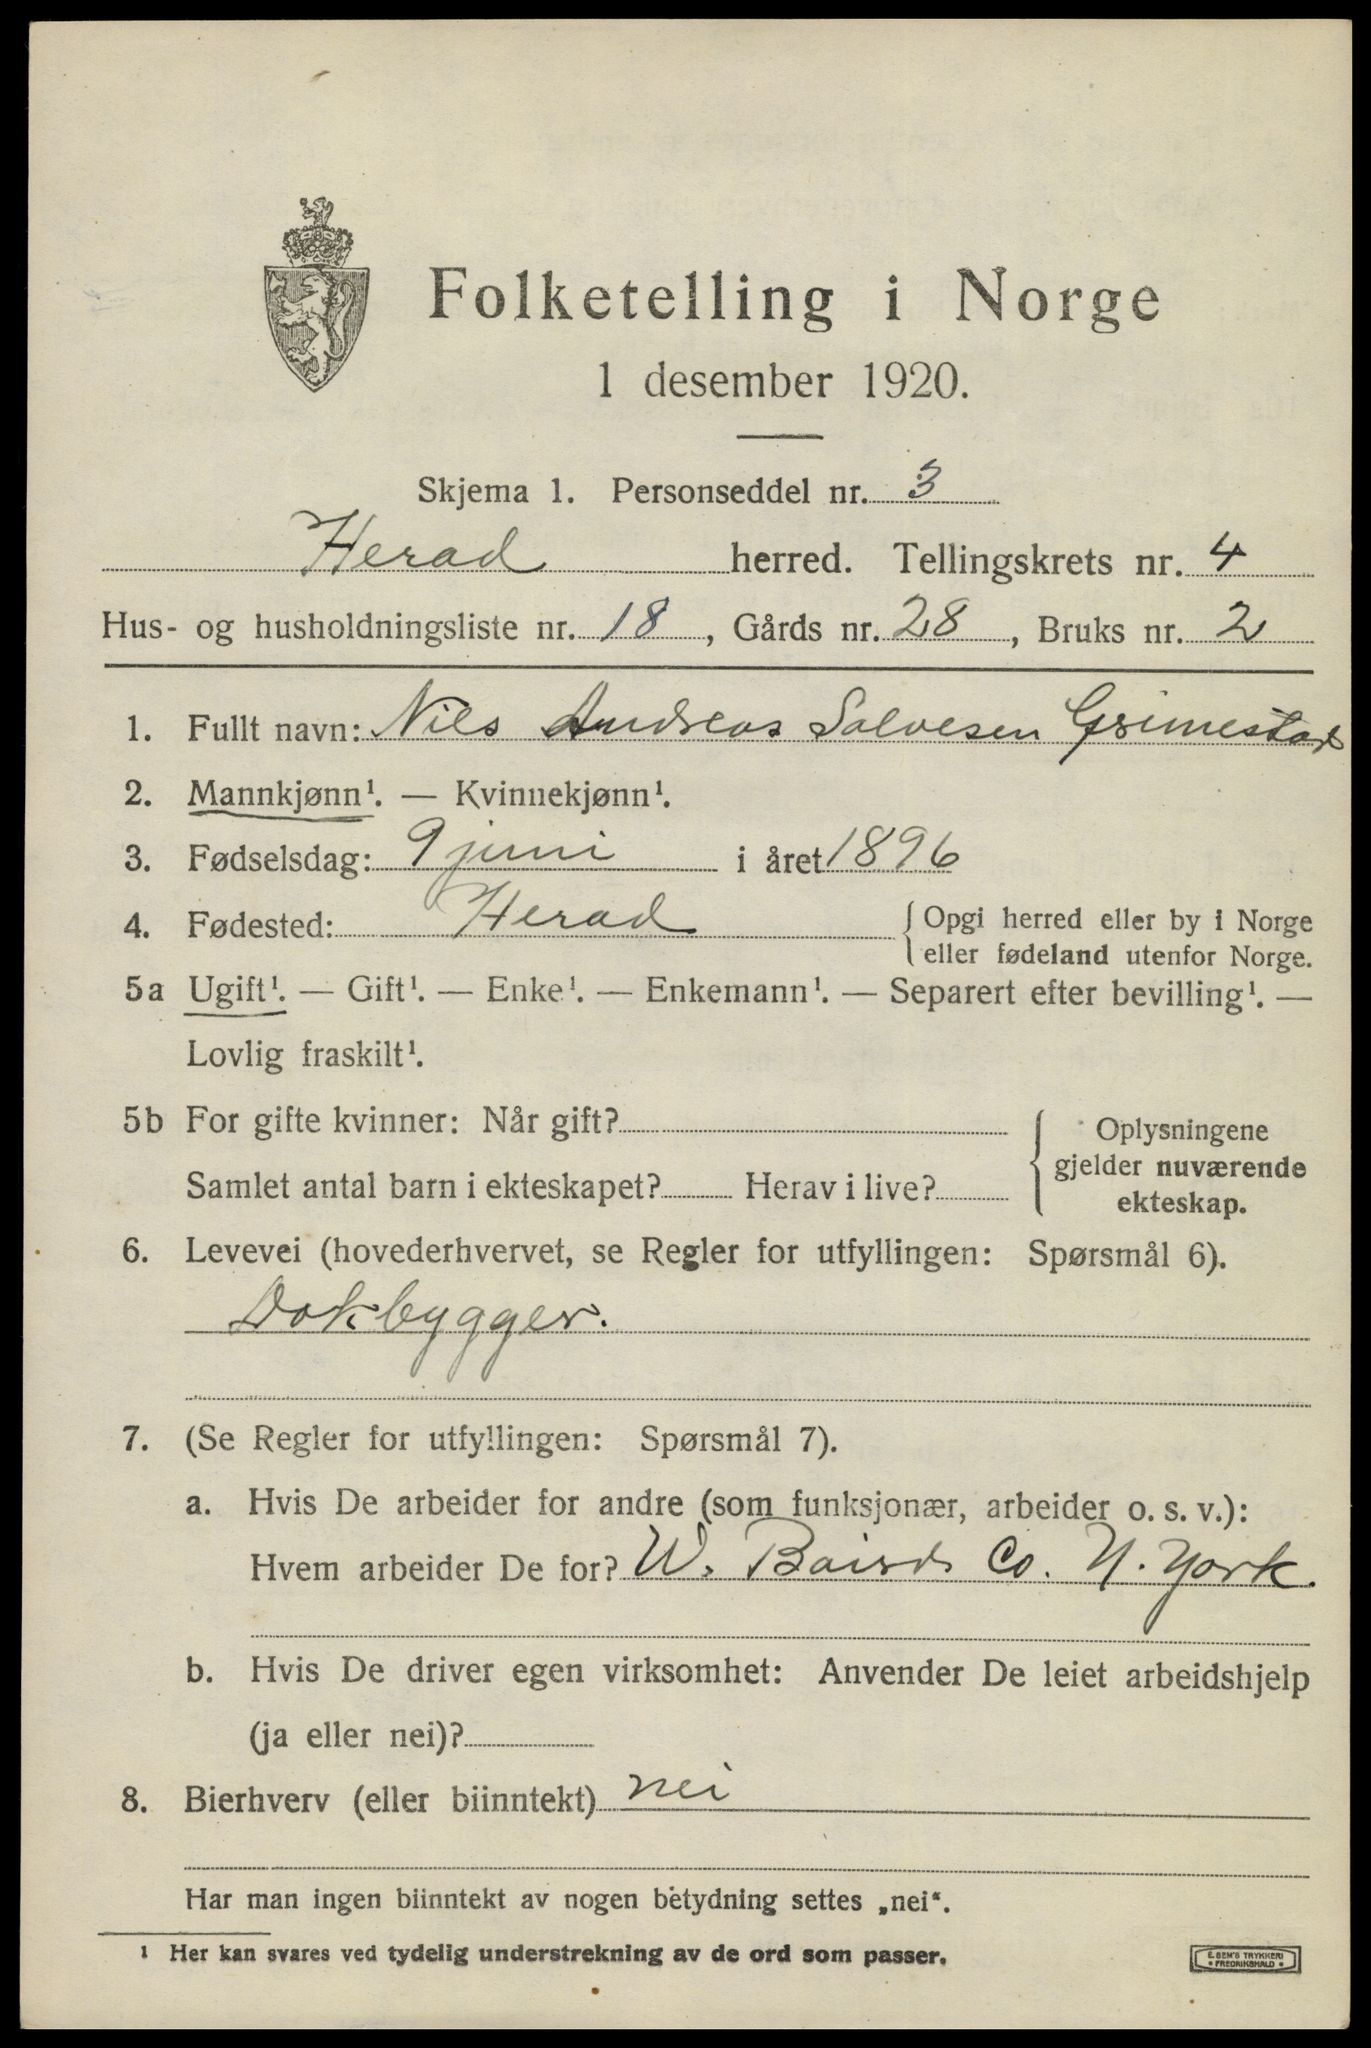 Folketelling i Norge
1 desember 1920.
Skjema 1. Personseddel nr. 3
Herad herred. Tellingskrets nr. 4
Hus- og husholdningsliste nr. 18, Gårds nr. 28, Bruks nr. 2
1. Fullt navn: Nils Andreas Salvesen Grimestad
2. Mannkjønn¹. — Kvinnekjønn¹.
3. Fødselsdag: 9 juni i året 1896
4. Fødested: Herad { Opgi herred eller by i Norge
eller fødeland utenfor Norge.
5a Ugift¹. — Gift¹. — Enke¹. — Enkemann¹. — Separert efter bevilling¹. —
Lovlig fraskilt¹.
5b For gifte kvinner: Når gift?
Samlet antal barn i ekteskapet? Herav i live?
{ Oplysningene
gjelder nuværende
ekteskap.
6. Levevei (hovederhvervet, se Regler for utfyllingen: Spørsmål 6).
Dokbygger.
7. (Se Regler for utfyllingen: Spørsmål 7).
a. Hvis De arbeider for andre (som funksjonær, arbeider o. s. v.):
Hvem arbeider De for? W. Bairds Co. N. York.
b. Hvis De driver egen virksomhet: Anvender De leiet arbeidshjelp
(ja eller nei)?
8. Bierhverv (eller biinntekt) nei
Har man ingen biinntekt av nogen betydning settes „nei“.
¹ Her kan svares ved tydelig understrekning av de ord som passer.
E. SEM'S TRYKKERI
• FREDRIKSHALD •